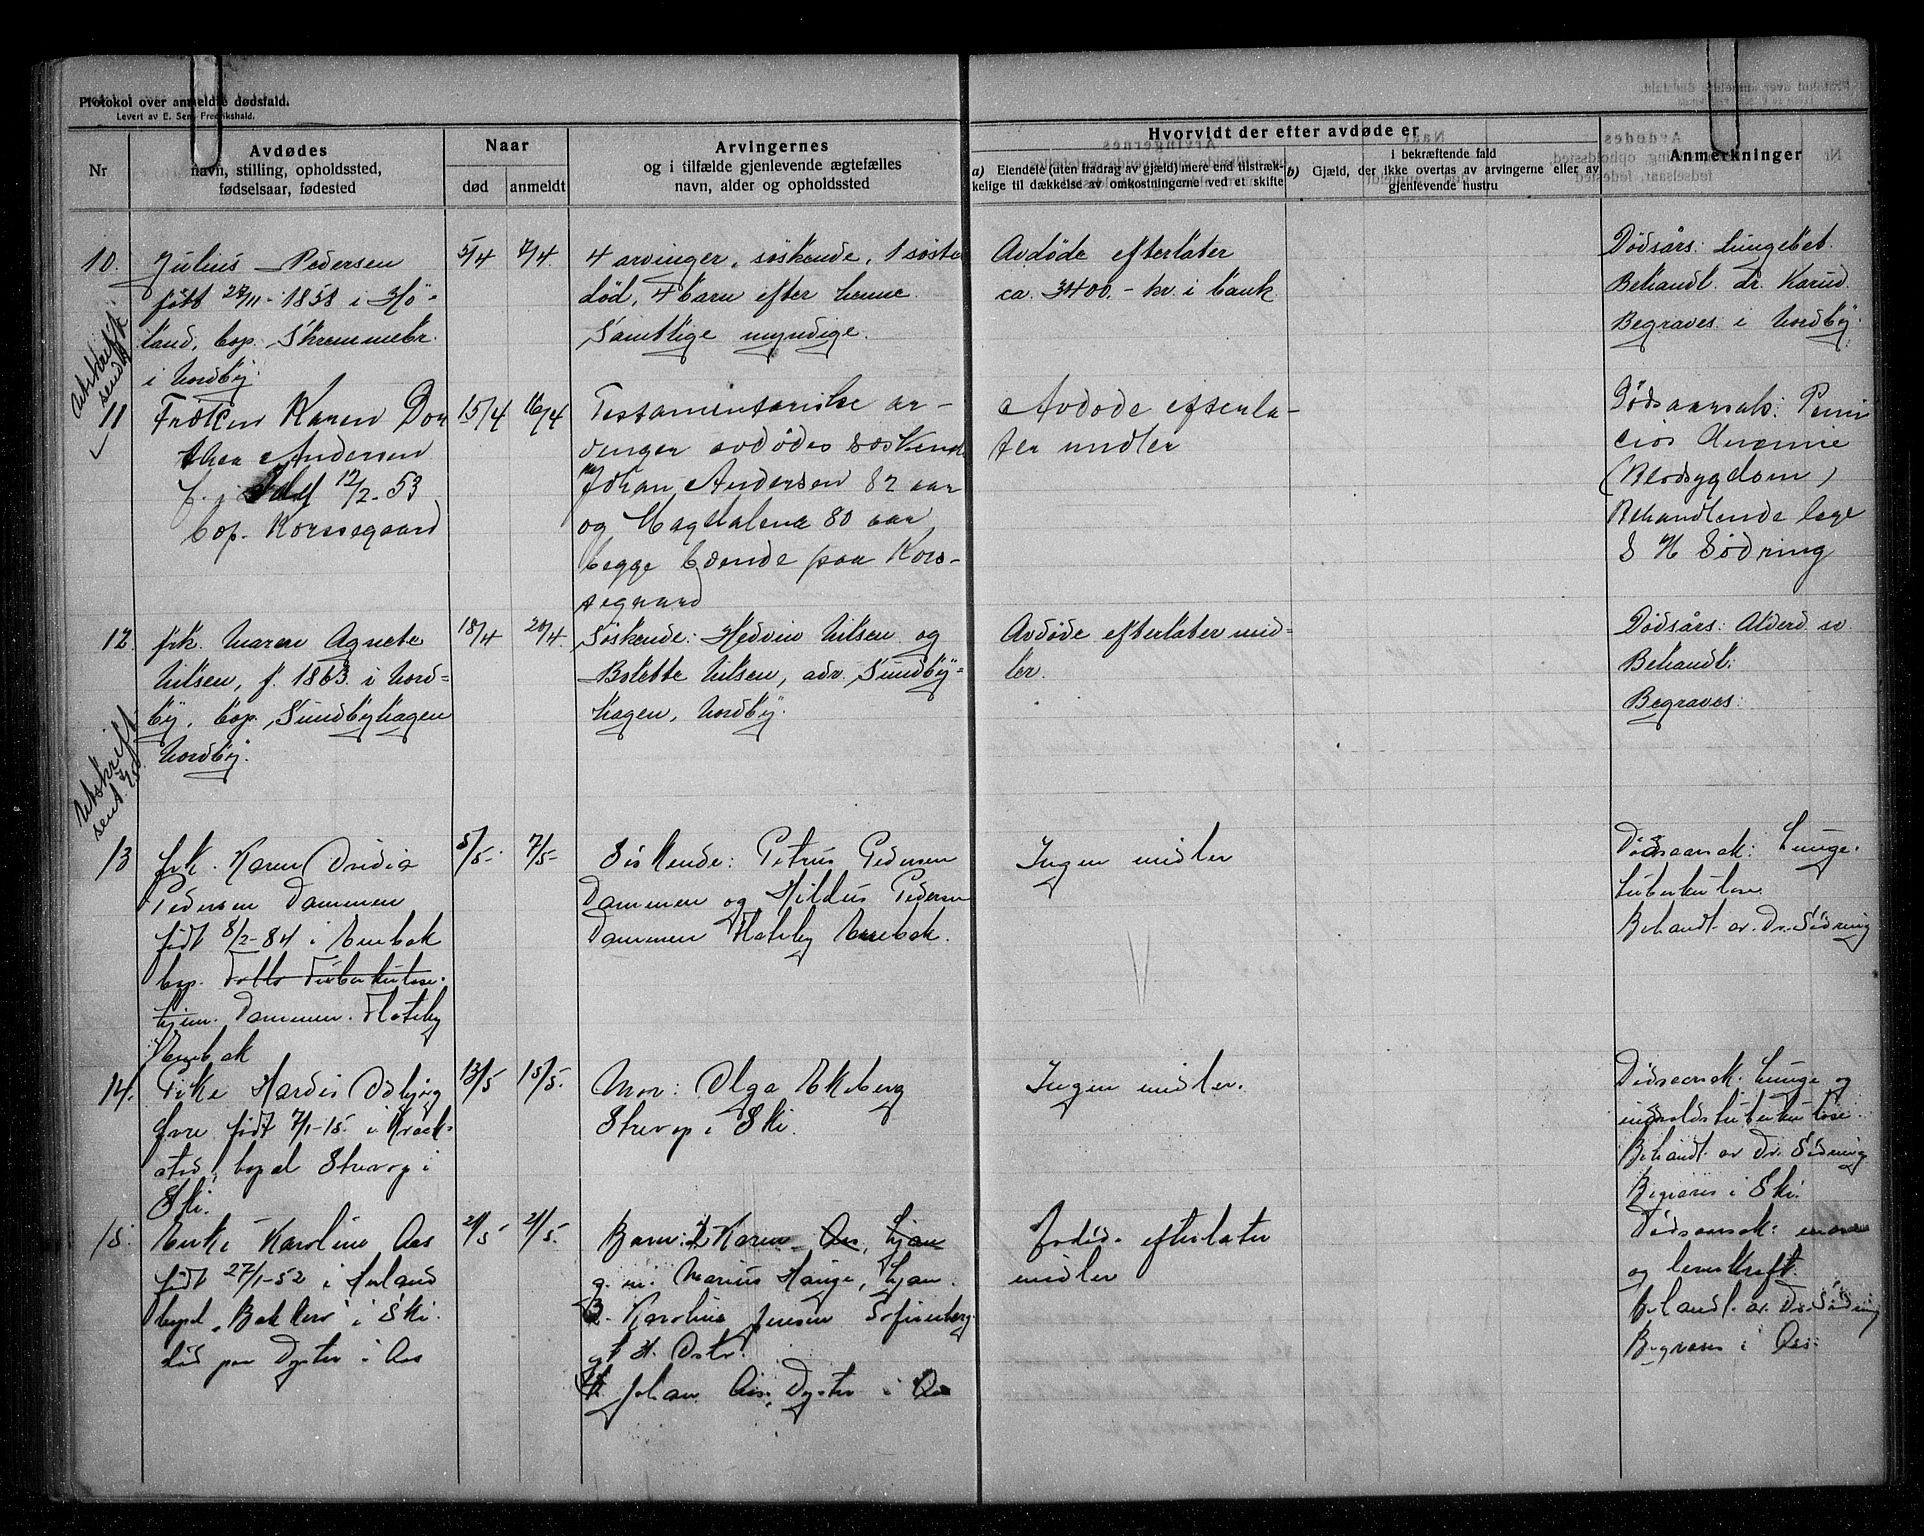 Protokol over anmeldte dødsfald.
Levert av E. Sem, Fredrikshald.
Nr
Avdødes
navn, stilling, opholdssted,
fødselsaar, fødested
Naar
død
anmeldt
Arvingernes
og i tilfælde gjenlevende ægtefælles
navn, alder og opholdssted
Hvorvidt der efter avdøde er
a) Eiendele (uten fradrag av gjæld) mere end tilstræk-
kelige til dækkelse av omkostningerne ved et skifte
i bekræftende fald
b) Gjæld, der ikke overtas av arvingerne eller av
gjenlevende hustru
Anmerkninger
10.
Julius Pedersen
født 27/11-1858 i Hö-
land, bop. Skremmebr.
i Nordby.
5/4
7/4.
4 arvinger, søskende, 1 søster
død, 4 barn efter henne.
Samtlige myndige.
Avdøde efterlater
ca. 3400.- kr. i bank
Dødsårs: Lungebet.
Behandl. dr. Karud.
Begraves i Nordby.
Utskrift
sendt
11
Frøken Karen Dor
thea Andersen
f. i 12/2-53
bop. Korsegaard
15/4
16/4
Testamentariske ar-
vinger avdødes søskende
Johan Andersen 82 aar
og Magdalena 80 aar
begge boende paa Kors-
egaard
Avdøde efterla-
ter midler
Dødsaarsak: Perni
ciøs Anæmie
(Blodsygdom)
Behandlende læge
S H Sødring
12.
frk. Maren Agnete
Nilsen, f. 1863 i Nord=
by, bop. Sundbyhagen
Nordby.
18/4
20/4.
Søskende: Hedvin Nilsen og
Bolette Nilsen, adr. Sundby=
hagen, Nordby.
Avdøde efterlater mid=
ler.
Dødsårs: Alderd.
Behandl:
Begraves:
Utskrift
sent.
13
frk. Karen Ovidia
Pedersen Dammen
født 8/2-84 i Enebak
bop. Follo Tuberkulose-
hjem. Dammen. Flateby
Enebak
5/5-
7/5-
Søskende: Petrus Pedersen
Dammen og Hildus Pedersen
Dammen Flateby Enebak.
Ingen midler
Dødsaarsak: Lunge-
tuberkulose.
Behandl. av. Dr. Södring
14.
Pike Hardis Osbjørg
født 7/1-15. i Kraak-
stad, bopel Skrevop i
Ski.
13/5
15/5.
Mor: Olga Ekeberg
Skrevop i Ski.
Ingen midler.
Dødsaarsak: Lunge og
tuberkulose.
Behandl av Dr. Södring
Begraves i Ski.
15.
Enke Karoline Aas
født 27/1-52 i Høland
bopel "Bakken" i Ski.
død paa Dyster i Aas
21/5
21/5.
Barn: Karen Aas, Ljan
g. m. Marius Hauge, Ljan.
Karoline Jensen Sofienberg-
gt H. Oslo.
Johan Aas, Dyster i Aas
Avdøde efterlater
midler
Dødsaarsak:
og
Behandl. av. Dr. Södring
Begraves i Aas.